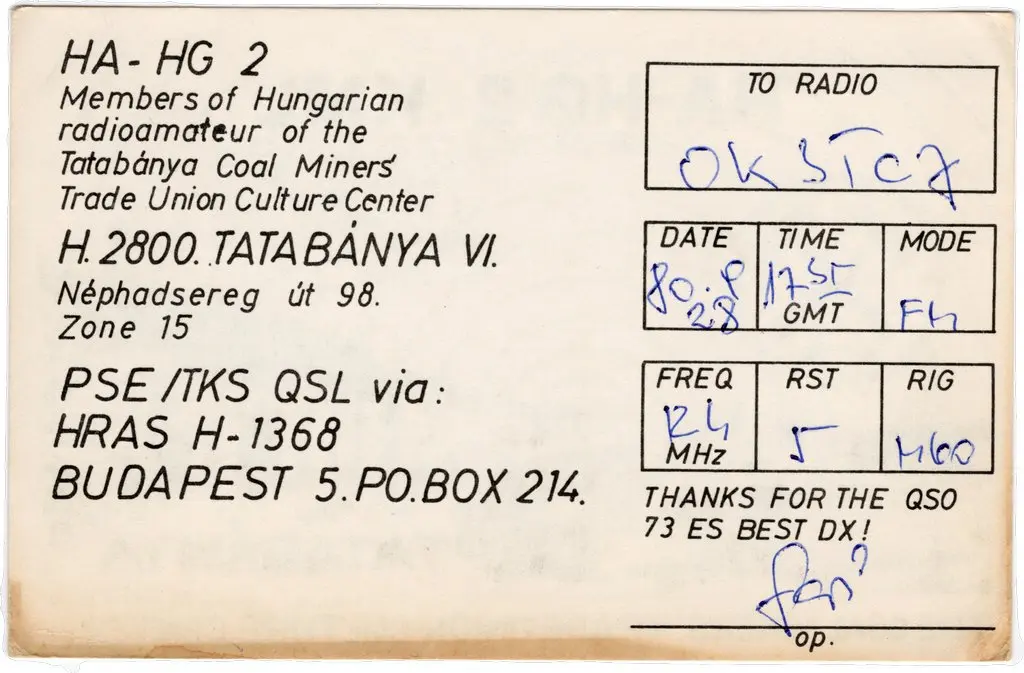 HA - HG 2
Members of Hungarian
radioamateur of the
Tatabánya Coal Miners'
Trade Union Culture Center
H. 2800. TATABÁNYA VI.
Néphadsereg út 98.
Zone 15
PSE /TKS QSL via:
HRAS H-1368
BUDAPEST 5. PO. BOX 214.
TO RADIO
OK3TCJ
DATE TIME MODE
80. 8 1735
28 GMT
FREQ RST RIG
5
MHz
THANKS FOR THE QSO
73 ES BEST DX!
op.